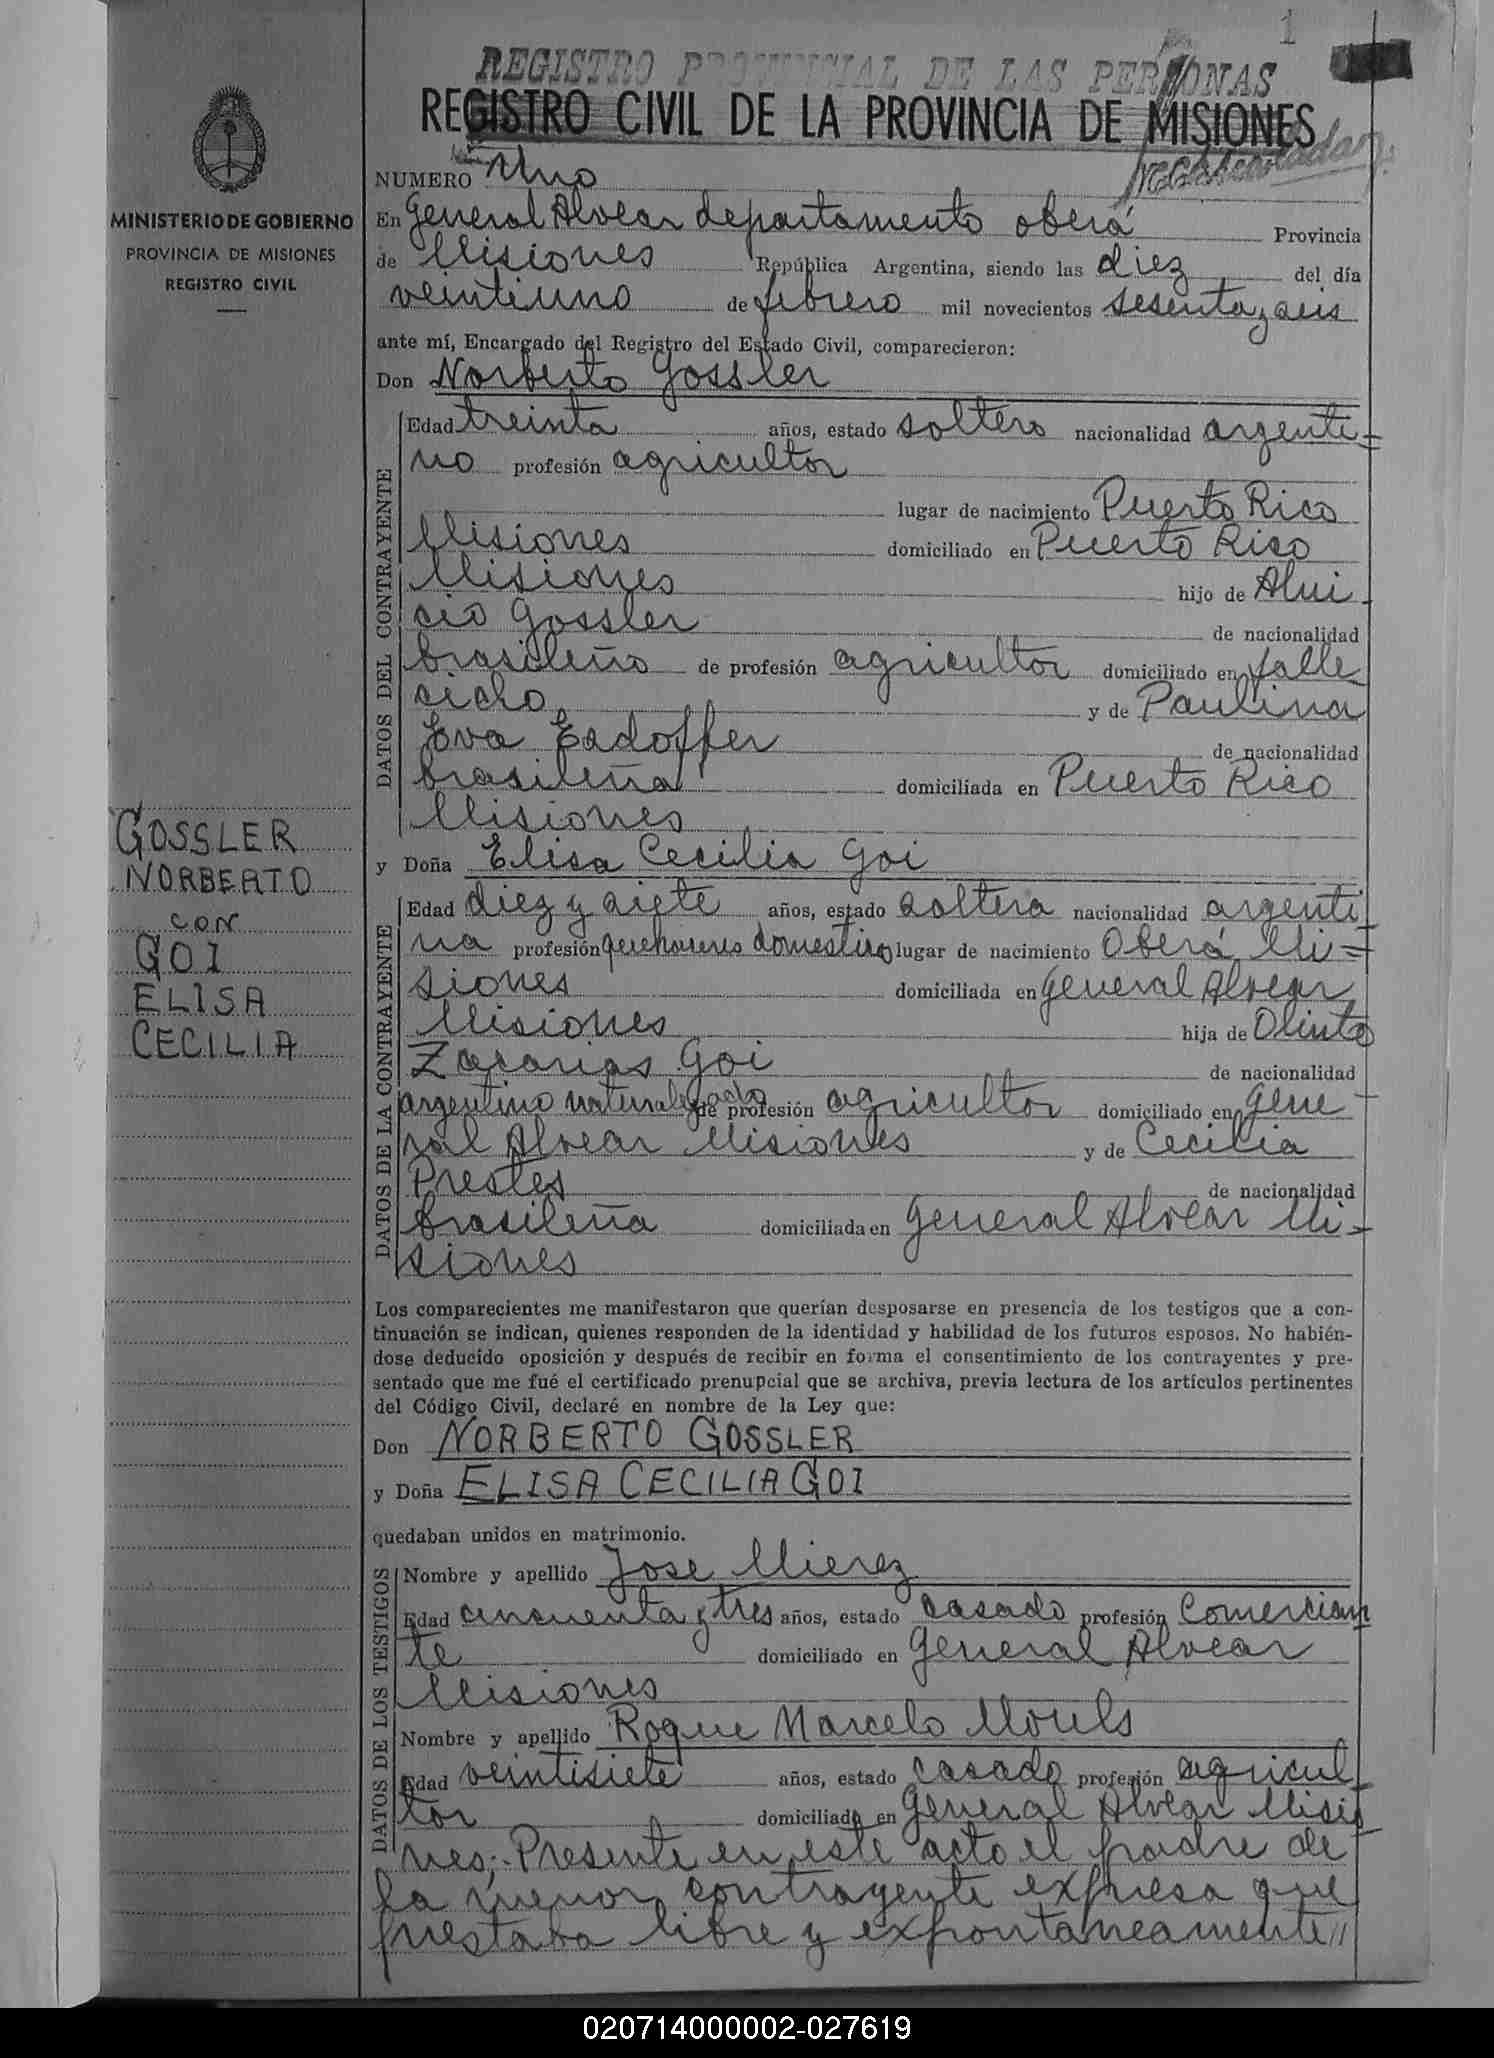 1
REGISTRO PROVINCIAL DE LAS PERSONAS
REGISTRO CIVIL DE LA PROVINCIA DE MISIONES
MINISTERIO DE GOBIERNO
PROVINCIA DE MISIONES
REGISTRO CIVIL
GOSSLER
NORBERTO
CON
GOI
ELISA
CECILIA
NUMERO Uno
En General Alvear departamento oberá Provincia
de Misiones República Argentina, siendo las diez del día
veintiuno de febrero mil novecientos sesenta y seis
ante mí, Encargado del Registro del Estado Civil, comparecieron:
Don Norberto Gossler
DATOS DEL CONTRAYENTE
Edad treinta años, estado soltero nacionalidad argenti=
no profesión agricultor
lugar de nacimiento Puerto Rico
Misiones domiciliado en Puerto Rico
Misiones hijo de Alui-
cio Gossler de nacionalidad
brasileño de profesión agricultor domiciliado en falle
cido y de Paulina
Eva Esdoffer de nacionalidad
brasileña domiciliada en Puerto Rico
Misiones
y Doña Elisa Cecilia Goi
DATOS DE LA CONTRAYENTE
Edad diez y siete años, estado soltera nacionalidad argenti-
na profesión quehaceres domestico lugar de nacimiento Oberá Mi=
siones domiciliada en General Alvear
Misiones hija de Olinto
Zacarias Goi de nacionalidad
argentino naturalizado de profesión agricultor domiciliado en Gene-
ral Alvear Misiones y de Cecilia
Prestes de nacionalidad
brasileña domiciliada en General Alvear Mi-
siones
Los comparecientes me manifestaron que querían desposarse en presencia de los testigos que a con-
tinuación se indican, quienes responden de la identidad y habilidad de los futuros esposos. No habién-
dose deducido oposición y después de recibir en forma el consentimiento de los contrayentes y pre-
sentado que me fué el certificado prenupcial que se archiva, previa lectura de los artículos pertinentes
del Código Civil, declaré en nombre de la Ley que:
Don NORBERTO GOSSLER
y Doña ELISA CECILIA GOI
quedaban unidos en matrimonio.
DATOS DE LOS TESTIGOS
Nombre y apellido Jose Mierez
Edad cincuenta y tres años, estado casado profesión Comercian
te domiciliado en General Alvear
Misiones
Nombre y apellido Roque Marcelo Mouls
Edad veintisiete años, estado casado profesión agricul-
tor domiciliado en General Alvear Misio
nes; Presente en este acto el padre de
la menor contrayente expresa que
prestaba libre y expontaneamente //
020714000002-027619